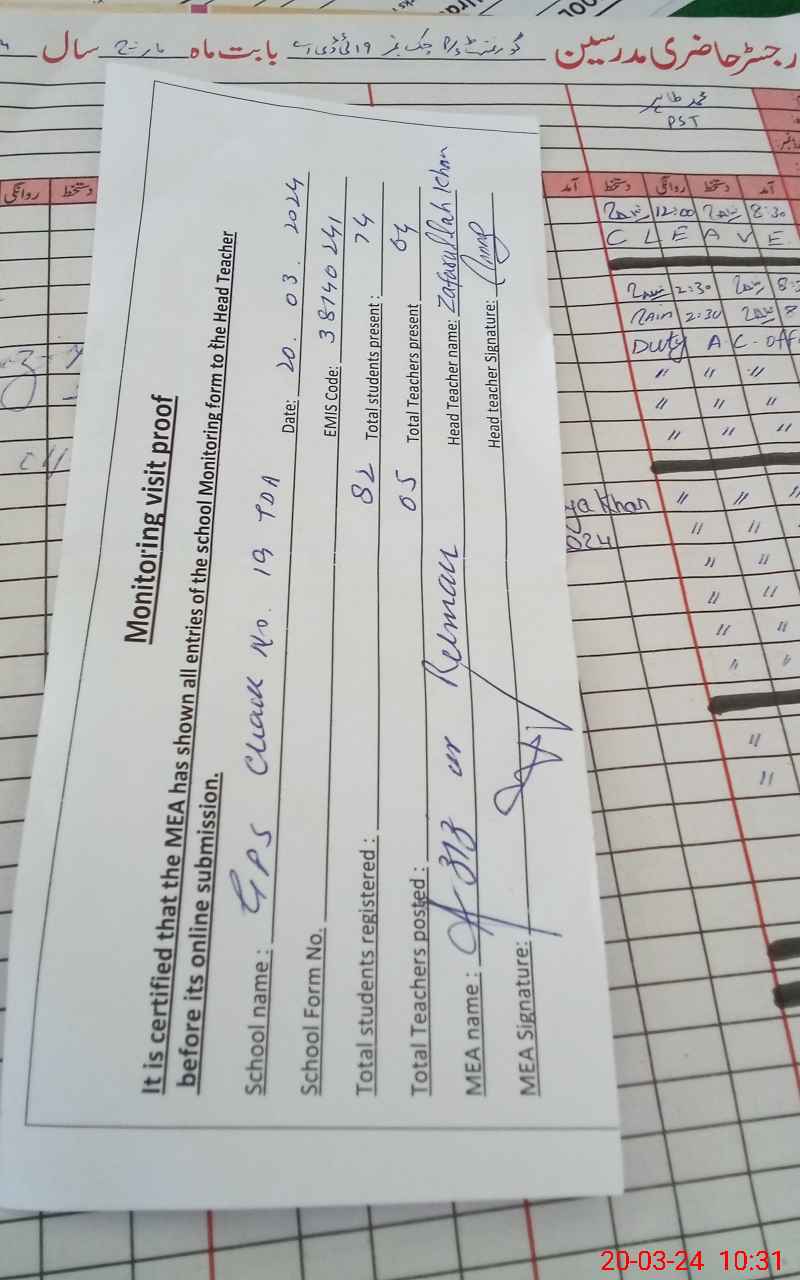 رجسٹر حاضری مدرسین گورنمنٹ P/S چک نمبر 19 ٹی ڈی اے بابت ماہ مارچ سال
محمد طاہر
PST
آمد دستخط روانگی دستخط آمد
روانگی دستخط
12:00 8:30
C L E A V E
2:30
2:30 8
Duty A.C. off
Khan
024
Monitoring visit proof
It is certified that the MEA has shown all entries of the school Monitoring form to the Head Teacher
before its online submission.
School name : GPS Chack No. 19 TDA Date: 20.03.2024
School Form No. EMIS Code: 38140241
Total students registered : 82 Total students present : 74
Total Teachers posted : 05 Total Teachers present 04
MEA name : ur Rehman Head Teacher name: Zafarullah Khan
MEA Signature: Head teacher Signature:
20-03-24 10:31